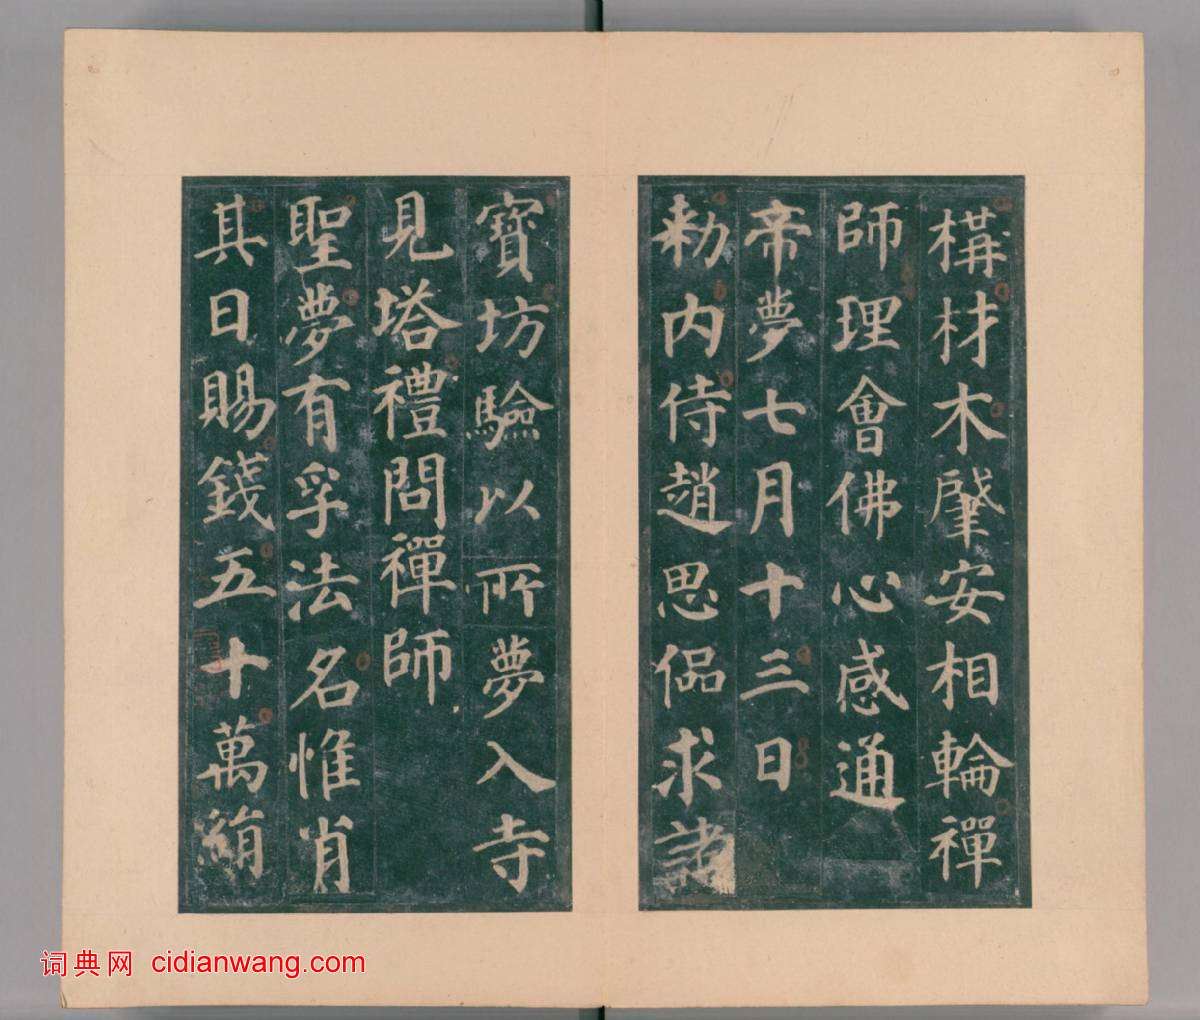 構材木肇安相輪禪
師理會佛心感通
帝夢七月十三日
勅内侍趙思偘求諸
寶坊驗以所夢入寺
見塔禮問禪師
聖夢有孚法名惟肖
其日賜錢五十萬絹
词典网 cidianwang.com